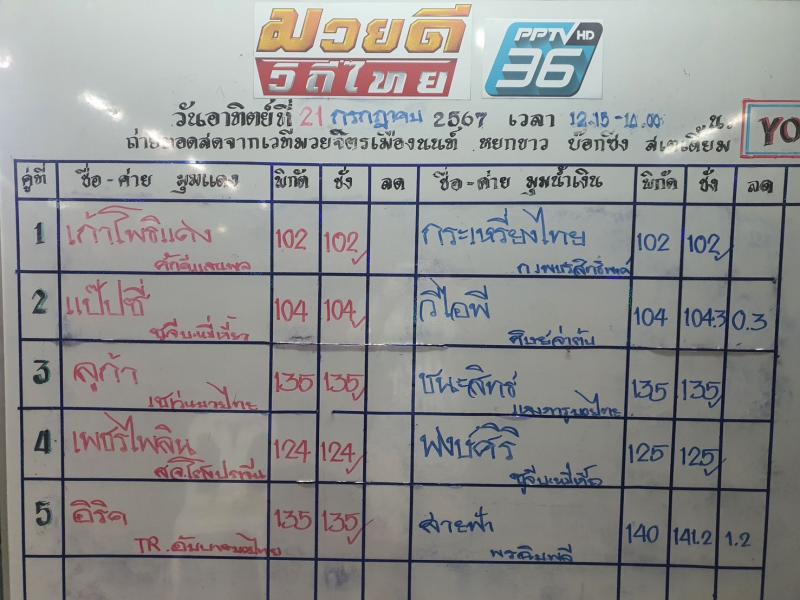 มวยดี
วิถีไทย
PPTV HD
36
วันอาทิตย์ที่ 21 กรกฎาคม 2567 เวลา 12.15-14.00 น.
ถ่ายทอดสดจากเวทีมวยจิตรเมืองนนท์ หยกขาว บ๊อกซิ่ง สเตเดี้ยม
YO
คู่ที่ ชื่อ-ค่าย มุมแดง พิกัด ชั่ง ลด ชื่อ-ค่าย มุมน้ำเงิน พิกัด ชั่ง ลด
1 เก้าโพธิ์แดง 102 102 กระเหรี่ยงไทย 102 102
2 แป๊ปซี่ 104 104 วีไอพี 104 104.3 0.3
ชูจีบะหมี่เกี๊ยว
3 ลูก้า 135 135 ชนะสิทธ์ 135 135
4 เพชรไพลิน 124 124 พงษ์ศิริ 125 125
ชูจีบะหมี่เกี๊ยว
5 อิริค 135 135 สายฟ้า 140 141.2 1.2
TR. พรฉิมพลี